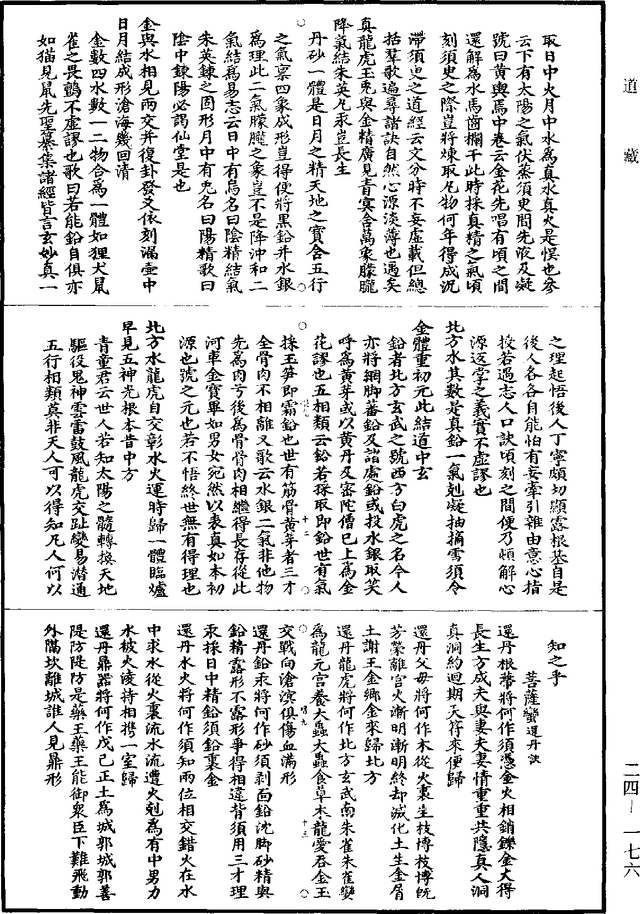 道藏
取日中火月中水為真水真火是悞也參
云下有太陽之氣伏蒸須史間先液及凝
號曰黃輿焉中卷云金花先唱有頃之間
還解為水馬齒攔干此時採真精之氣頃
刻須史之際豈將煉取凡物何年得成況
滯須史之道經云文分時不妄虛載但總
括羣歌遍尋諸訣自然心源淡薄也遇矣
真龍虎玉兎與金精廣見青㝠含萬象朦朧
降氣結朱英凡汞豈長生
丹砂一體是日月之精天地之寶含五行
之氣禀四象成形豈得便將黑鉛并水銀
為理此二氣朦朧之象豈不是降沖和二
氣結為易志云日中有烏名曰陰精結氣
朱英鍊之固形月中有兎名曰陽精歌曰
陰中鍊陽必謁仙堂是也
金與水相見兩交并復卦發文依刻漏壺中
日月結成形滄海幾回清
金數四水數一二物合為一體如狸犬鼠
雀之畏鸇不虛謬也歌曰若能鉛自俱亦
如猫見鼠先聖纂集諸經皆言玄妙真一
之理起悟後人丁寧頗切顯露根基自是
後人各各自能怕有妄牽引雜由意心指
投若遇志人口訣頃刻之間便乃頓解心
源返掌之義實不虛謬也
北方水其數是真鉛一氣剋凝抽摘雪須令
金體重初元此結道中玄
鉛者北方玄武之號西方白虎之名今人
亦將網脚蕃鉛及諸處鉛或投水銀取笑
呼為黃芽或以黃丹及宻陀僧巳上為金
花謬也五相類云鉛若採取即鉛世有氣
採玉笋即霜鉛也世有筋骨黃芽者三才
全骨肉不相離又歌云水銀二氣非他物
先為肉亏後為骨骨肉相繼得長存從此
河車金寶畢如男女宛然以表真如本初
源也號之元也若不悟終世無有得理也
北方水龍虎自交彰水火運時歸一體臨爐
早見五神光根本昔中方
青童君云世人若知太陽之髓轉換天地
驅役鬼神雲雷鼓風龍虎交趾變易潜通
五行相類莫非天人可以得知凡人何以
知之乎
菩薩蠻還丹訣
還丹根蔕將何作須憑金火相銷鑠金大得
長生方成夫與妻夫妻情重重共隱真人洞
真洞約迴期天符來便歸
還丹父毋將何作木從火裏生枝愽枝愽旣
芳榮離宮火漸明漸明終却滅化土生金屑
土謝王金鄉金來歸北方
還丹龍虎將何作北方玄武南朱雀朱雀變
為龍元宫養大蟲大蟲食草木龍愛吞金玉
交戰向滄溟俱傷血滿形
還丹鉛汞將何作砂須剥面鉛沈脚砂精與
鉛精露形不露形爭得相違背須用三才理
汞採日中精鉛須鉛裏金
還丹水火將何作須知兩位相交錯火在水
中求水從火裏流水流遭火剋為有中男力
水被火淩持相携一室歸
還丹鼎器將何作戊己正土為城郭城郭善
隄防隄防是藥王藥王能御衆臣下難飛動
外隔坎離城誰人見鼎形
二四－一七六